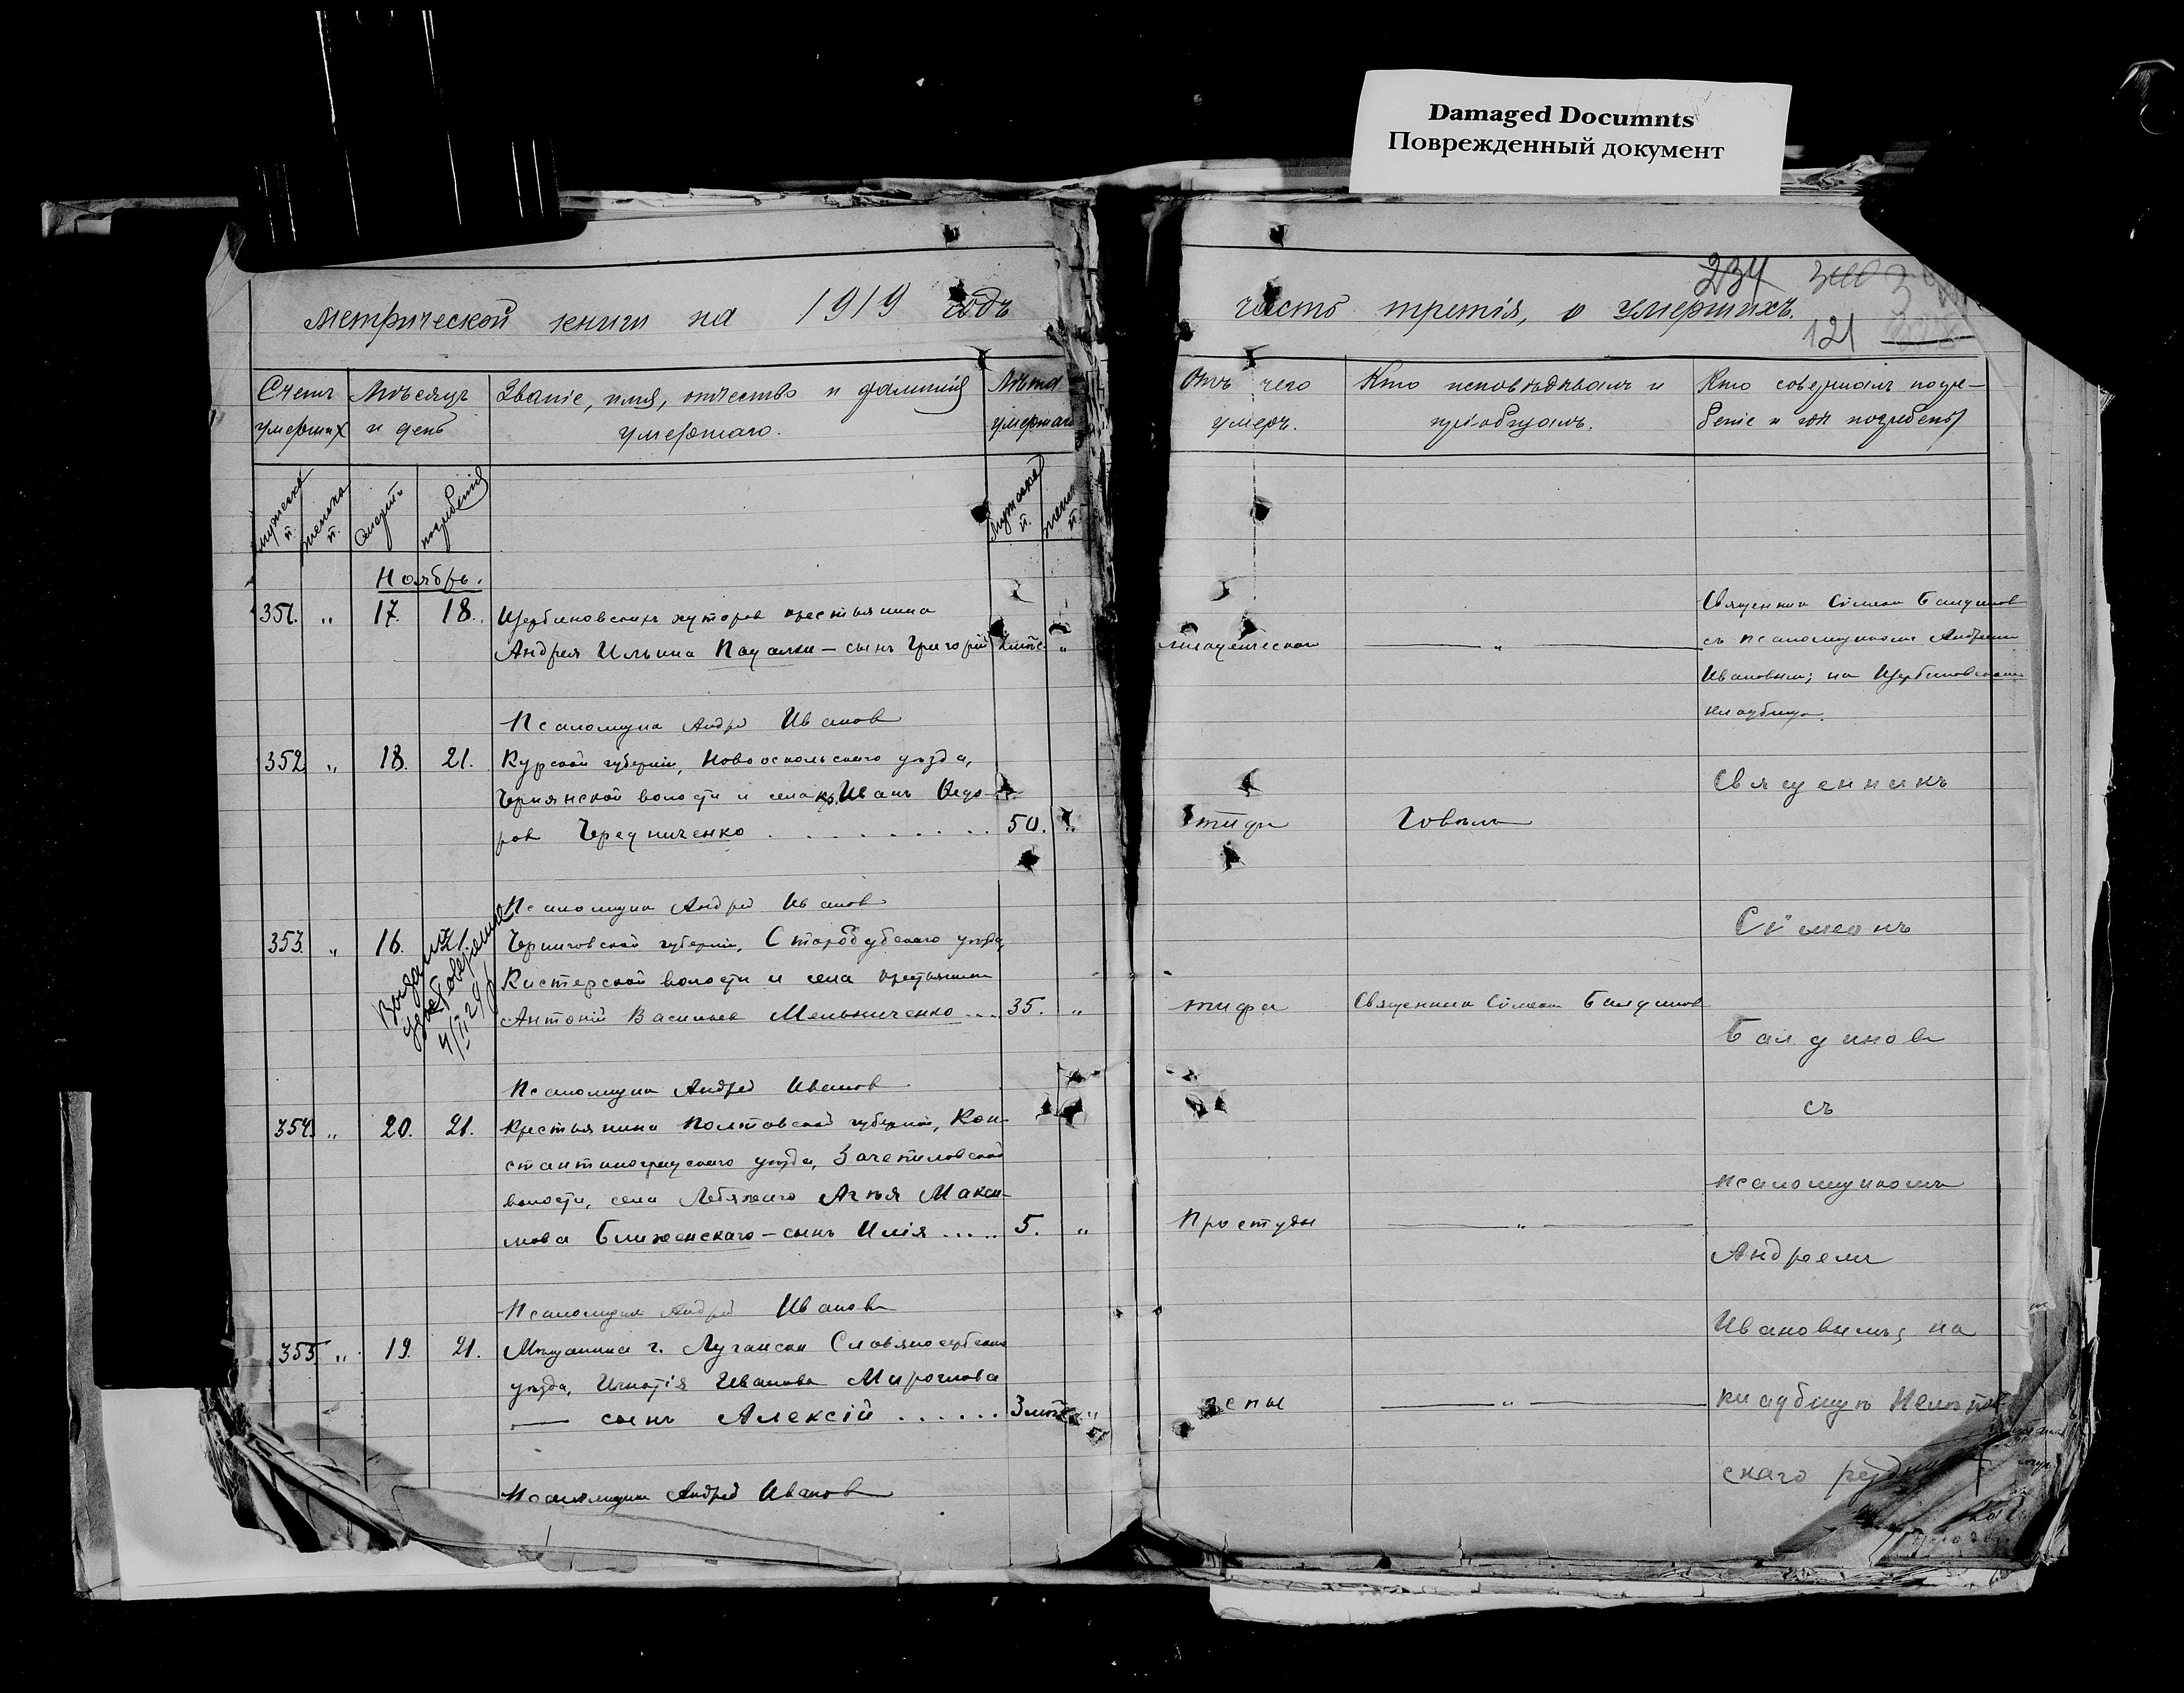 Damaged Documnts
Поврежденный документ
метрической книги на 1919 годъ
Счетъ умершихъ
Мѣсяцъ и день
Званіе, имя, отчество и фамилія умершаго.
Лѣта умершаго
мужеска п.
женска п.
смерти
погребенія
Мужескаго п.
женск п.
Ноябрь.
351. „ 17. 18. Щербиновскихъ хуторовъ крестьянина
Андрея Ильина Пащалки — сынъ Григорій „
Псаломщикъ Андрей Ивановъ
352 „ 18. 21. Курской губерніи, Новооскольскаго уѣзда,
Чернянской волости и села кр. Иванъ Ѳедо-
ровъ Чередниченко . . . . . . . . . 50. „
Псаломщикъ Андрей Ивановъ
353. „ 16. 21. Черниговской губерніи, Стародубскаго уѣзда,
Кистерской волости и села крестьянинъ
Антоній Васильевъ Мельниченко ... 35. „
Выдано удостовереніе
4/II 29 г
Псаломщикъ Андрей Ивановъ
354. „ 20. 21. Крестьянина Полтавской губерніи, Кон-
стантиноградскаго уѣзда, Зачепиловской
волости, села Лебяжаго Агѣя Макси-
мова Ближенскаго — сынъ Илія ..... 5. „
Псаломщикъ Андрей Ивановъ
355. „ 19. 21. Мѣщанина г. Луганска Славяносербскаго
уѣзда, Игнатія Иванова Мирошова
— сынъ Алексій . . . . . . 3 мѣс „
Псаломщикъ Андрей Ивановъ
часть третія, о умершихъ.
234
121
Отъ чего умеръ.
Кто исповѣдывалъ и пріобщалъ.
Кто совершалъ погре-
беніе и гдѣ погребены
младенческой — „ —
Священникъ Сімеонъ Балдиновъ
съ псаломщикомъ Андреемъ
Ивановымъ; на Щербиновскомъ
кладбищѣ.
тифа Говѣлъ
тифа Священникъ Сімеонъ Балдиновъ
Простуды — „ —
оспы — „ —
Священникъ
Сімеонъ
Балдиновъ
съ
псаломщикомъ
Андреемъ
Ивановымъ; на
кладбищѣ Нелѣпов
скаго рудни